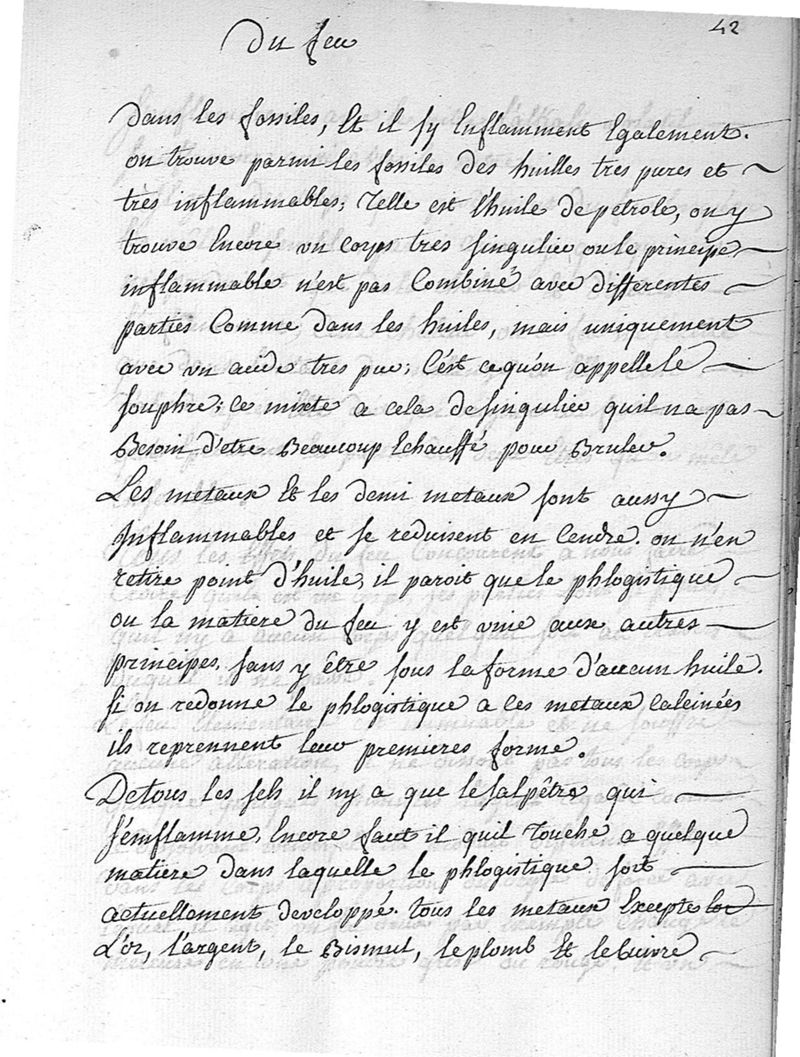 42
Du feu
dans les fossiles, Et il s'y Enflamment Egalement.
on trouve parmi les fossiles des huilles tres pures et
très inflammables; Telle est l'huile de petrole, on y
trouve Encore un Corps tres singulier ou le principe
inflammable n'est pas Combiné avec differentes
parties Comme dans les huiles, mais uniquement
avec un acide tres pur; C'est ce qu'on appelle le
souphre; ce mixte a cela de singulier qu'il n'a pas
Besoin d'etre Beaucoup Echauffé pour Bruler.
Les metaux Et les demi metaux sont aussy
Inflammables et se reduisent en Cendre. on n'en
retire point d'huile, il paroit que le phlogistique
ou la matiere du feu y est unie aux autres
principes, sans y être sous la forme d'aucun huile.
si on redonne le phlogistique a ces metaux Calcinées
ils reprennent leur premieres forme.
De tous les sels il n'y a que le salpêtre qui
s'emflamme, Encore faut il qu'il Touche a quelque
matiere dans laquelle le phlogistique soit
actuellement developpé. tous les metaux Excepte lor
L'or, l'argent, le Bismut, le plomb Et le Cuivre